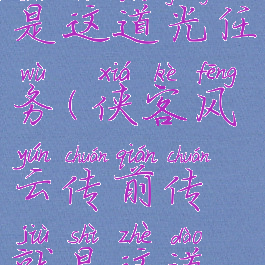 是这道光任
wù xiá kè fēng
务(侠客风
yún chuán qián chuán
云传前传
jiù shì zhè dào
就是这道